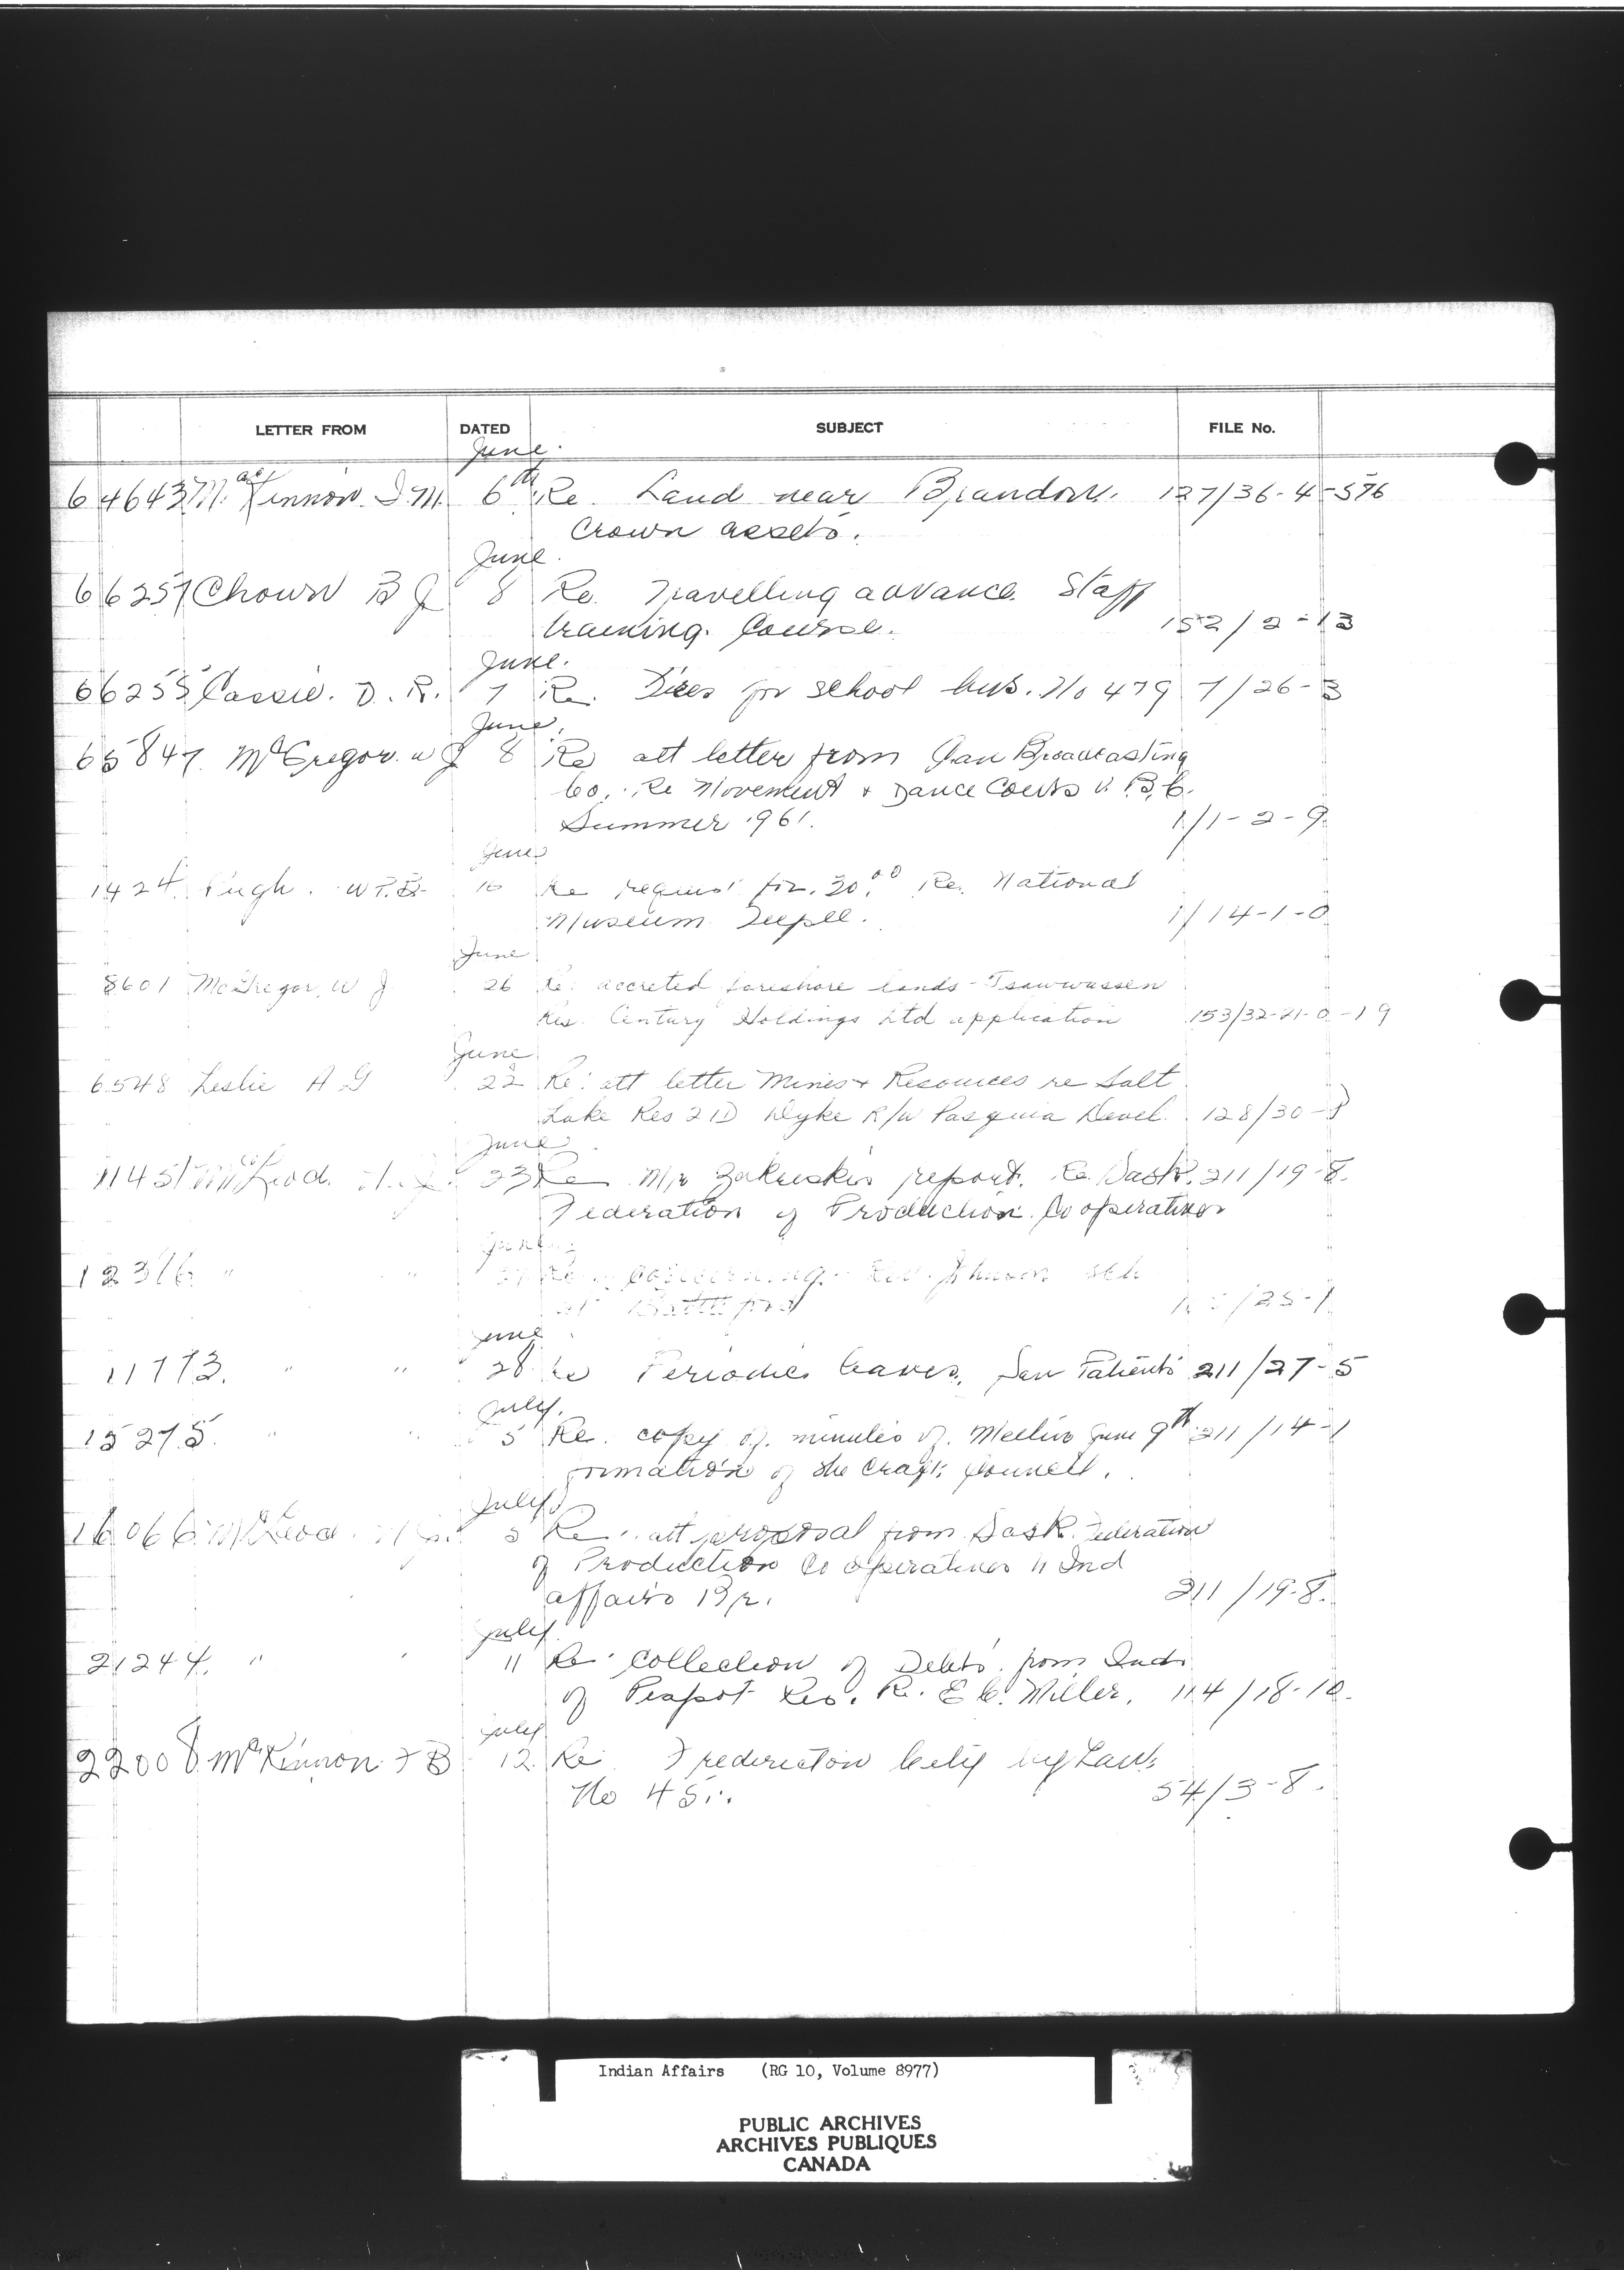 LETTER FROM DATED SUBJECT FILE No.
June
64643 McKinnon. I. M. 6th Re. Land near Brandon. 127/36-4-576
Crown assets.
June
66257 Chown B J 8 Re. Travelling advance Staff
training. Course. 152/2-13
June.
66255 Cassie. D. R. 7 Re. Tires for school bus. No 479 1/26-3
June.
65847. McGregor. W J 8 Re att letter from Can Broadcasting
Co. Re Movement & Dance
Summer 1961. 1/1-2-9
June
1424 Pugh. 16 Re request for. 30.00 Re. National
Museum 1/14-1-0
June
8601 McGregor, W J 26 Re: accreted foreshore lands - Tsawwassen
Res. Century Holdings Ltd application 153/32-21-0-19
June
6548 Leslie A G 22 Re: att letter Mines & Resources re Salt
Lake Res 21D Dyke R/W Pasquia Devel. 128/30-8
June
11451 McLeod. 23 Re report. Re. Sask. 211/19-8.
Federation of Production Cooperatives
June
12316. " " Re Johnson
/25-1
June
11773. " " 28 Re Periodic leaves, San Patients 211/27-5
July.
15275. " " 5 Re. copy of. minutes of. Meeting June 9th 211/14-1
formation of the Craft Council.
July
16066 McLeod. 5 Re. att proposal from Sask. Federation
of Production Cooperatives " Ind
affairs Br. 211/19-8.
July
21244. " " 11 Re. Collection of Debts. from Inds
of Peapot Res. Re. E C. Miller. 114/18-10.
July
22008. McKinnon F B 12. Re Fredericton City by Laws
No 45. 54/3-8.
Indian Affairs (RG 10, Volume 8977)
PUBLIC ARCHIVES
ARCHIVES PUBLIQUES
CANADA